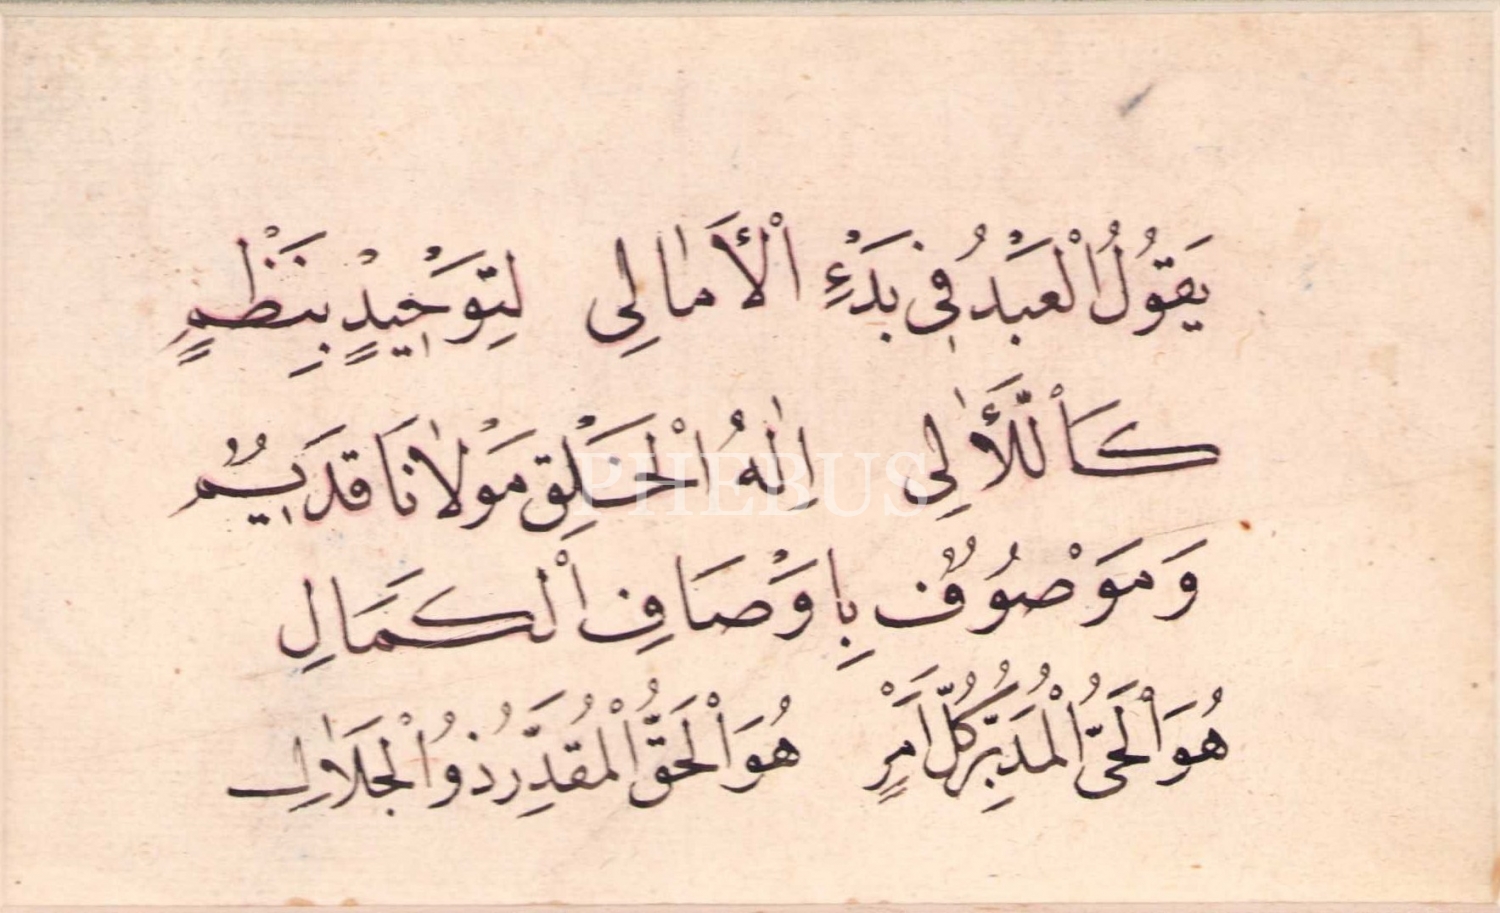 يَقُولُ الْعَبْدُ فِي بَدْءِ الْأَمَالِي لِتَوْحِيْدٍ بِنَظْمٍ
كَاَللَّأَلِي اِلٰهُ الْخَلْقِ مَوْلَانَا قَدِيْمٌ
وَمَوْصُوْفٌ بِاَوْصَافِ الْكَمَالِ
هُوَ الْحَيُّ الْمُدَبِّرُ كُلَّ اَمْرٍ هُوَ الْحَقُّ الْمُقَدِّرُ ذُو الْجَلَالِ
PHEBUS